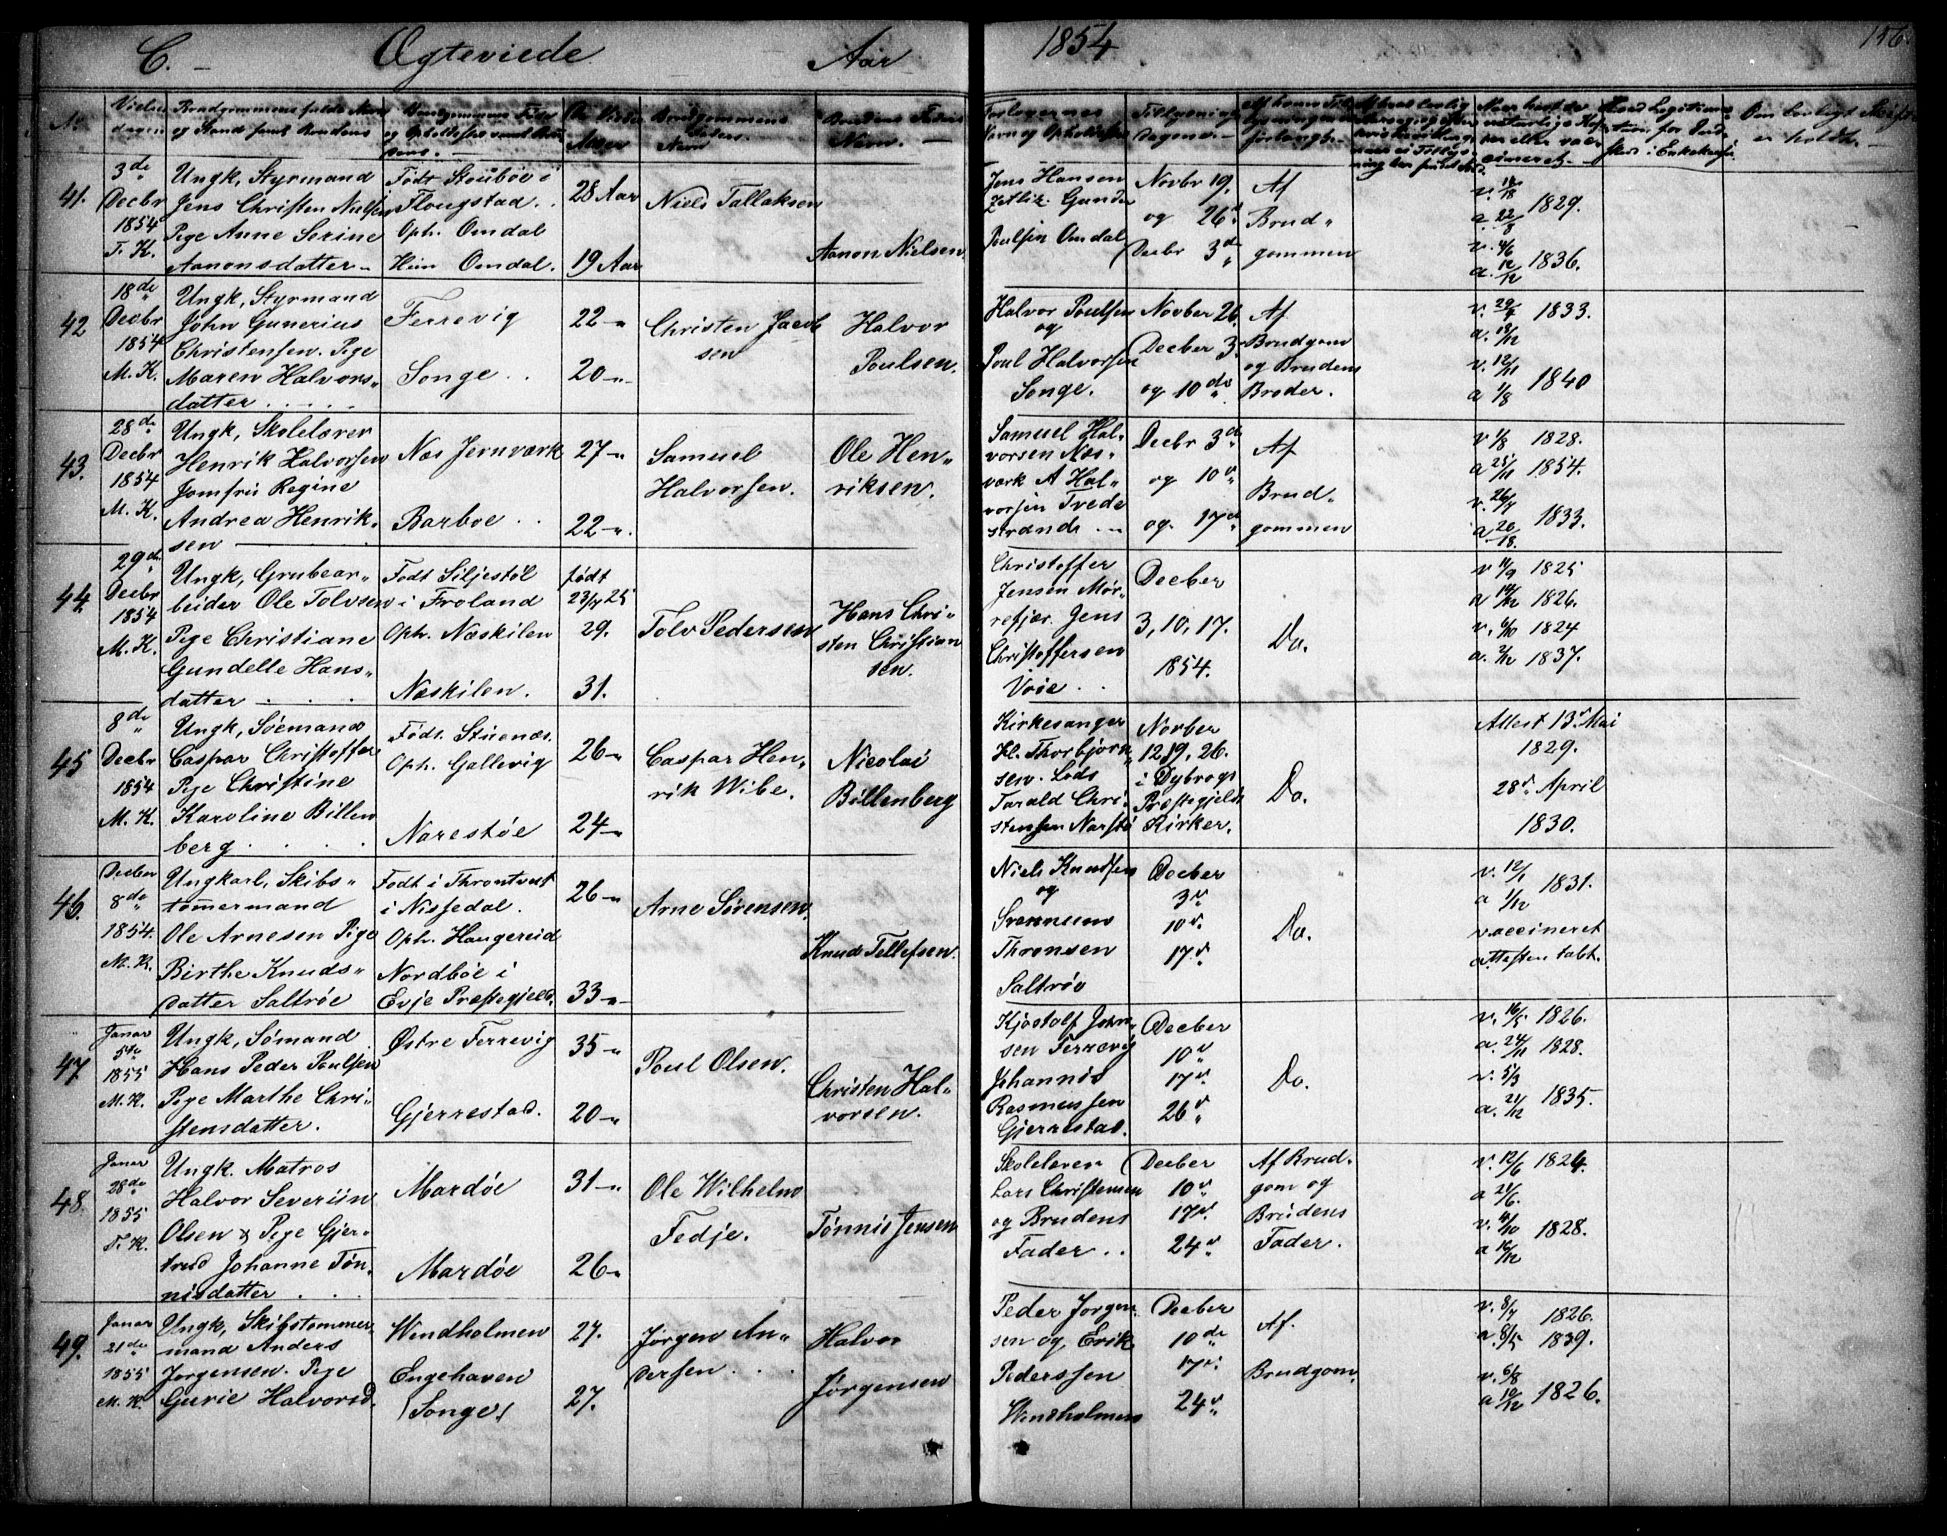 C. Ægteviede Aar 1854 156.
No
Vielses dagen
Brudgommens fulde Navn og Stand samt Brudens
Brudgommens Føde og Opholdssted samt Brudens. —
Alder Aaren
Brudgommens Faders Navn
Brudens Faders Navn. —
Forlovernes Navn og Opholdssted
Tillysnings Dagene. —
Af hvem Tillysningen er forlangt. —
er holdt. —
41.
3de Decbr 1854 T. K.
Ungk, Styrmand
Jens Christen Nielsen
Pige Anne Serine
Aanonsdatter —
Født Stoubøe i
Flougstad . .
Oph. Omdal
Hun Omdal.
28 Aar
19 Aar
Niels Tallaksen
Aanon Nielsen
Jens Hansen
Zetlitz. Gunder
Poulsen Omdal
Novbr 19.
og 26d
Decbr 3de
Af
Brud„
gommen
a. 22/8 1829.
a. 12/12 1836.
42
18de Decbr 1854 M. K.
Ungk, Styrmand
John Gunerius
Christensen. Pige
Maren Halvors„
datter . . . . .
Ferrevig
Songe . .
22 —„
20 —„
Christen Jacob
sen
Halvor
Poulsen.
Halvor Poulsen
og
Poul Halvorsen
Songe.
Novber 26.
Decber 3
og 10de
Af
Brudgom
og Brudens
Broder.
v. 29/4 1833.
a. 18/12
v. 12/11
a 1/8 1840
43.
28de Decbr 1854 M. K.
Ungk, Skolelærer
Henrik Halvorsen
Jomfru Regine
Andrea Henrik„
sen
Næs Jernværk
Barboe . .
27 —„
22 —„
Samuel
Halvorsen.
Ole Hen„
riksen.
Samuel Hal„
vorsen Næs„
værk A Hal„
vorsen Tvede
strand. —
Decbr 3de
og 10d
og 17de
Af
Brud„
gommen
v 1/8 1828.
a 25/11 1854.
v. 26/7
a 20/18. 1833.
44.
29de Decbr 1854 M. K.
Ungk, Grubear„
beider Ole Tolvsen
Pige Christiane
Gundelle Hans„
datter . . . .
Født Siljestøl
i Froland
Oph. Næskilen
Næskilen.
født
23/4 25
29.
31.
Tolv Pedersen
Hans Chri„
sten Christian
sen.
Christoffer
Jensen Mør„
refjær. Jens
Christoffersen
Voie . .
Decber
3, 10, 17.
1854.
Do.
v 11/9 1825
a 14/12 1826.
v. 6/10 1824
a. 2/12 1837.
45
8de Decbr 1854 M. K.
Ungk, Søemand
Caspar Christoffer
Pige Christine
Karoline Billen
berg . . . .
Født. Stuenæs.
Oph. Gallevig
Narestøe
26 —„
24 —„
Caspar Hen„
rik Wibe.
Nicolai
Billenberg
Kirkesanger
Hl. Thorbjørn„
sen. Lods
Tarald Chri„
stensen Narstø
Novber
12, 19, 26.
i Dybvogs
Præstegjelds
Kirker.
Do.
Attest 13d Mai
1829.
28d April
1830.
46.
Decber 8de 1854. M. K.
Ungkarl, Skibs„
tømmermand
Ole Arnesen Pige
Birthe Knuds„
datter Saltrøe
Født i Throntveit
i Nissedal.
Oph. Haugereid
Nordbøe i
Evje Præstegjeld.
26 —„
33 —„
Arne Sørensen.
Knud Tellefsen.
Niels Knudsen
og
Svennum
Thronsen
Saltrøe
Decber
3d
10d.
17d
Do.
v. 12/1
a 1/12 1831.
vaccineret
attesten tabt.
47
Januar 5te 1855 M. K.
Ungk, Sømand
Hans Peder Poulsen
Pige Marthe Chri„
stensdatter.
Østre Ferrevig
Gjerrestad.
35 —„
20 —„
Poul Olsen.
Christen Hal„
vorsen.
Kjøstolf John„
sen Ferrevig
Johannis
Rasmussen
Gjerrestad.
Decber
10d
17d.
26d
Do.
v. 16/5 1826.
a. 24/11 1828.
v. 5/3
a. 21/12 1835.
48.
Januar 28de 1855 T. K.
Ungk. Matros
Halvor Severiin
Olsen & Pige Gjer„
trud Johanne Tøn„
nisdatter . . .
Mardøe
Mardøe
31 —„
26 —„
Ole Wilhelm
Fedje.
Tønnis Jensen
Skolelærer
Lars Christensen
og Brudens
Fader . .
Decber
10d
17d.
24d
Af Brud„
gom og
Brudens
Fader.
v. 12/6 1824.
a 21/6.
v. 4/10
a 16/12 1828.
49.
Januar 21de 1855 M. K.
Ungk, Skibstømmer„
mand Anders
Jørgensen. Pige
Gurie Halvorsd.
Windholmen
Engehaven
(Songe)
27.
27.
Jørgen An„
dersen . . .
Halvor
Jørgensen
Peder Jørgen„
sen og Erik
Pedersen
Windholmen
Decber
10de
17d.
24d
Af.
Brudgom.
v. 8/7 1826.
a. 8/5 1839.
v. 6/8
a 10/12 1826.